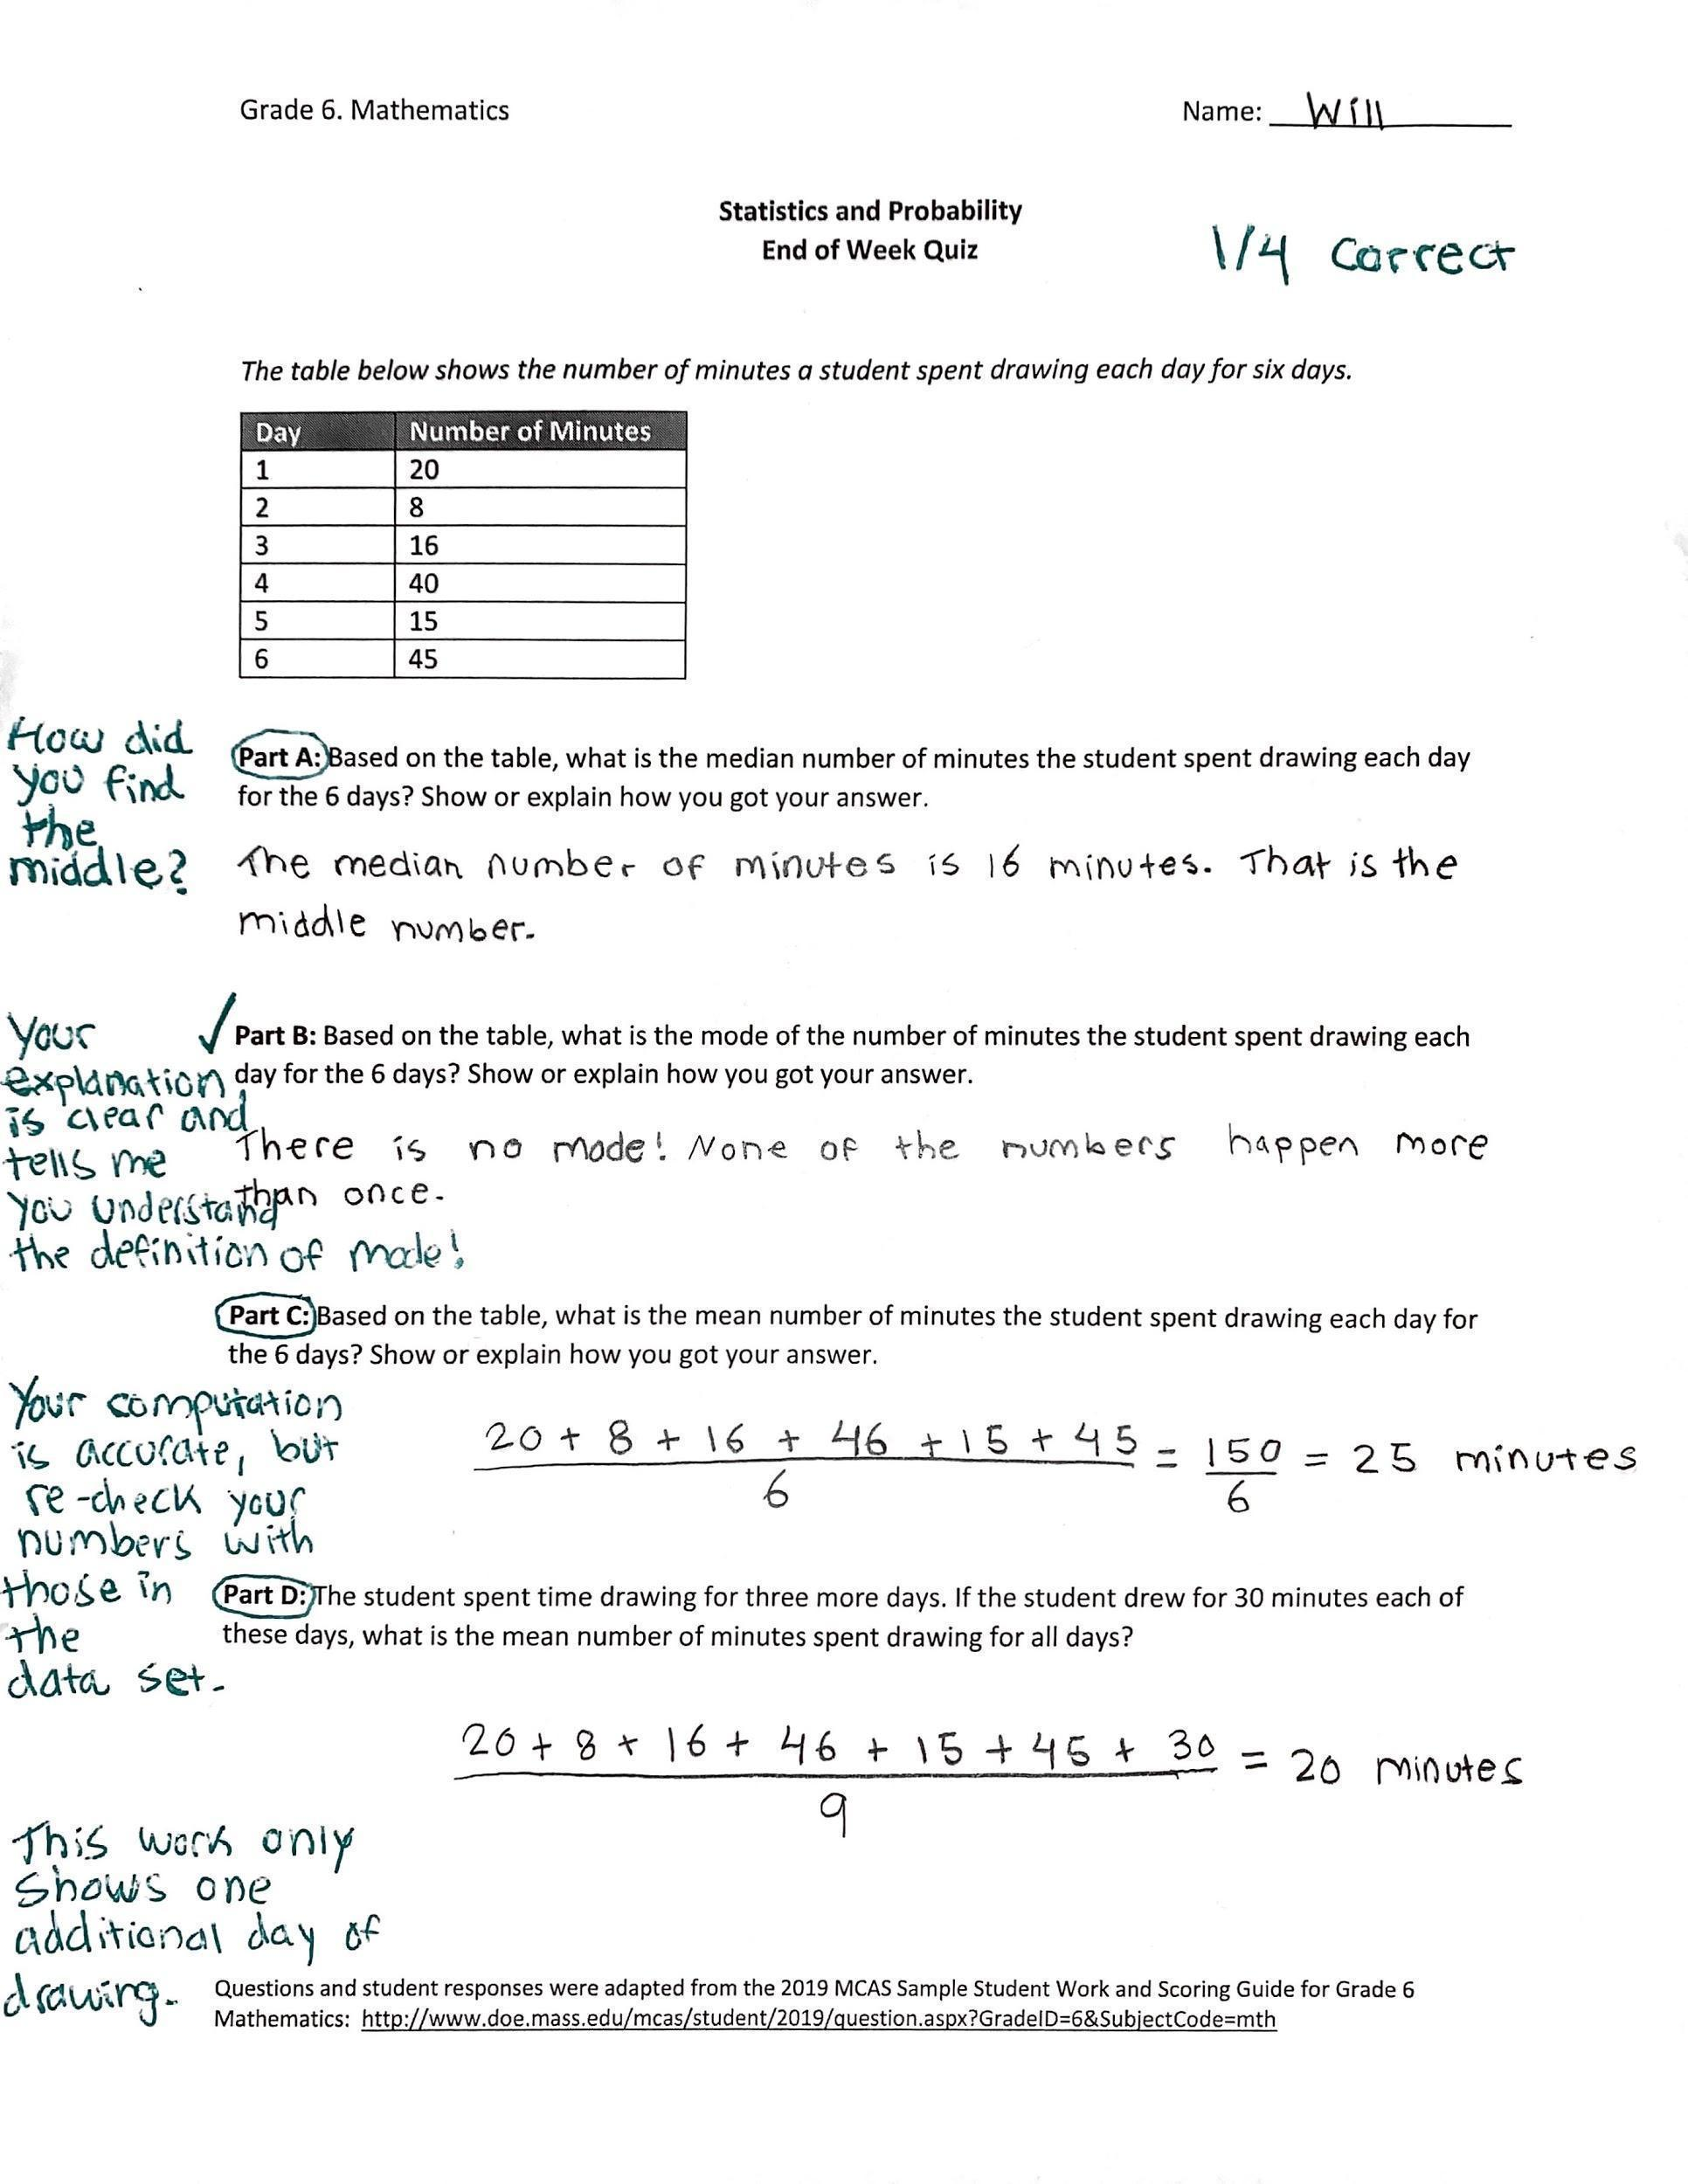 Grade 6. Mathematics
Name: Will
Statistics and Probability
End of Week Quiz
1/4 correct
The table below shows the number of minutes a student spent drawing each day for six days.
Day Number of Minutes
1 20
2 8
3 16
4 40
5 15
6 45
How did
you find
the
middle?
Part A: Based on the table, what is the median number of minutes the student spent drawing each day
for the 6 days? Show or explain how you got your answer.
The median number of minutes is 16 minutes. That is the
middle number.
Your
explanation
is clear and
tells me
you understand
the definition of mode!
✓ Part B: Based on the table, what is the mode of the number of minutes the student spent drawing each
day for the 6 days? Show or explain how you got your answer.
There is no mode! None of the numbers happen more
than once.
Part C: Based on the table, what is the mean number of minutes the student spent drawing each day for
the 6 days? Show or explain how you got your answer.
Your computation
is accurate, but
re-check your
numbers with
those in
the
data set.
20 + 8 + 16 + 46 + 15 + 45 = 150 = 25 minutes
6 6
Part D: The student spent time drawing for three more days. If the student drew for 30 minutes each of
these days, what is the mean number of minutes spent drawing for all days?
20 + 8 + 16 + 46 + 15 + 45 + 30 = 20 minutes
9
This work only
shows one
additional day of
drawing.
Questions and student responses were adapted from the 2019 MCAS Sample Student Work and Scoring Guide for Grade 6
Mathematics: http://www.doe.mass.edu/mcas/student/2019/question.aspx?GradeID=6&SubjectCode=mth